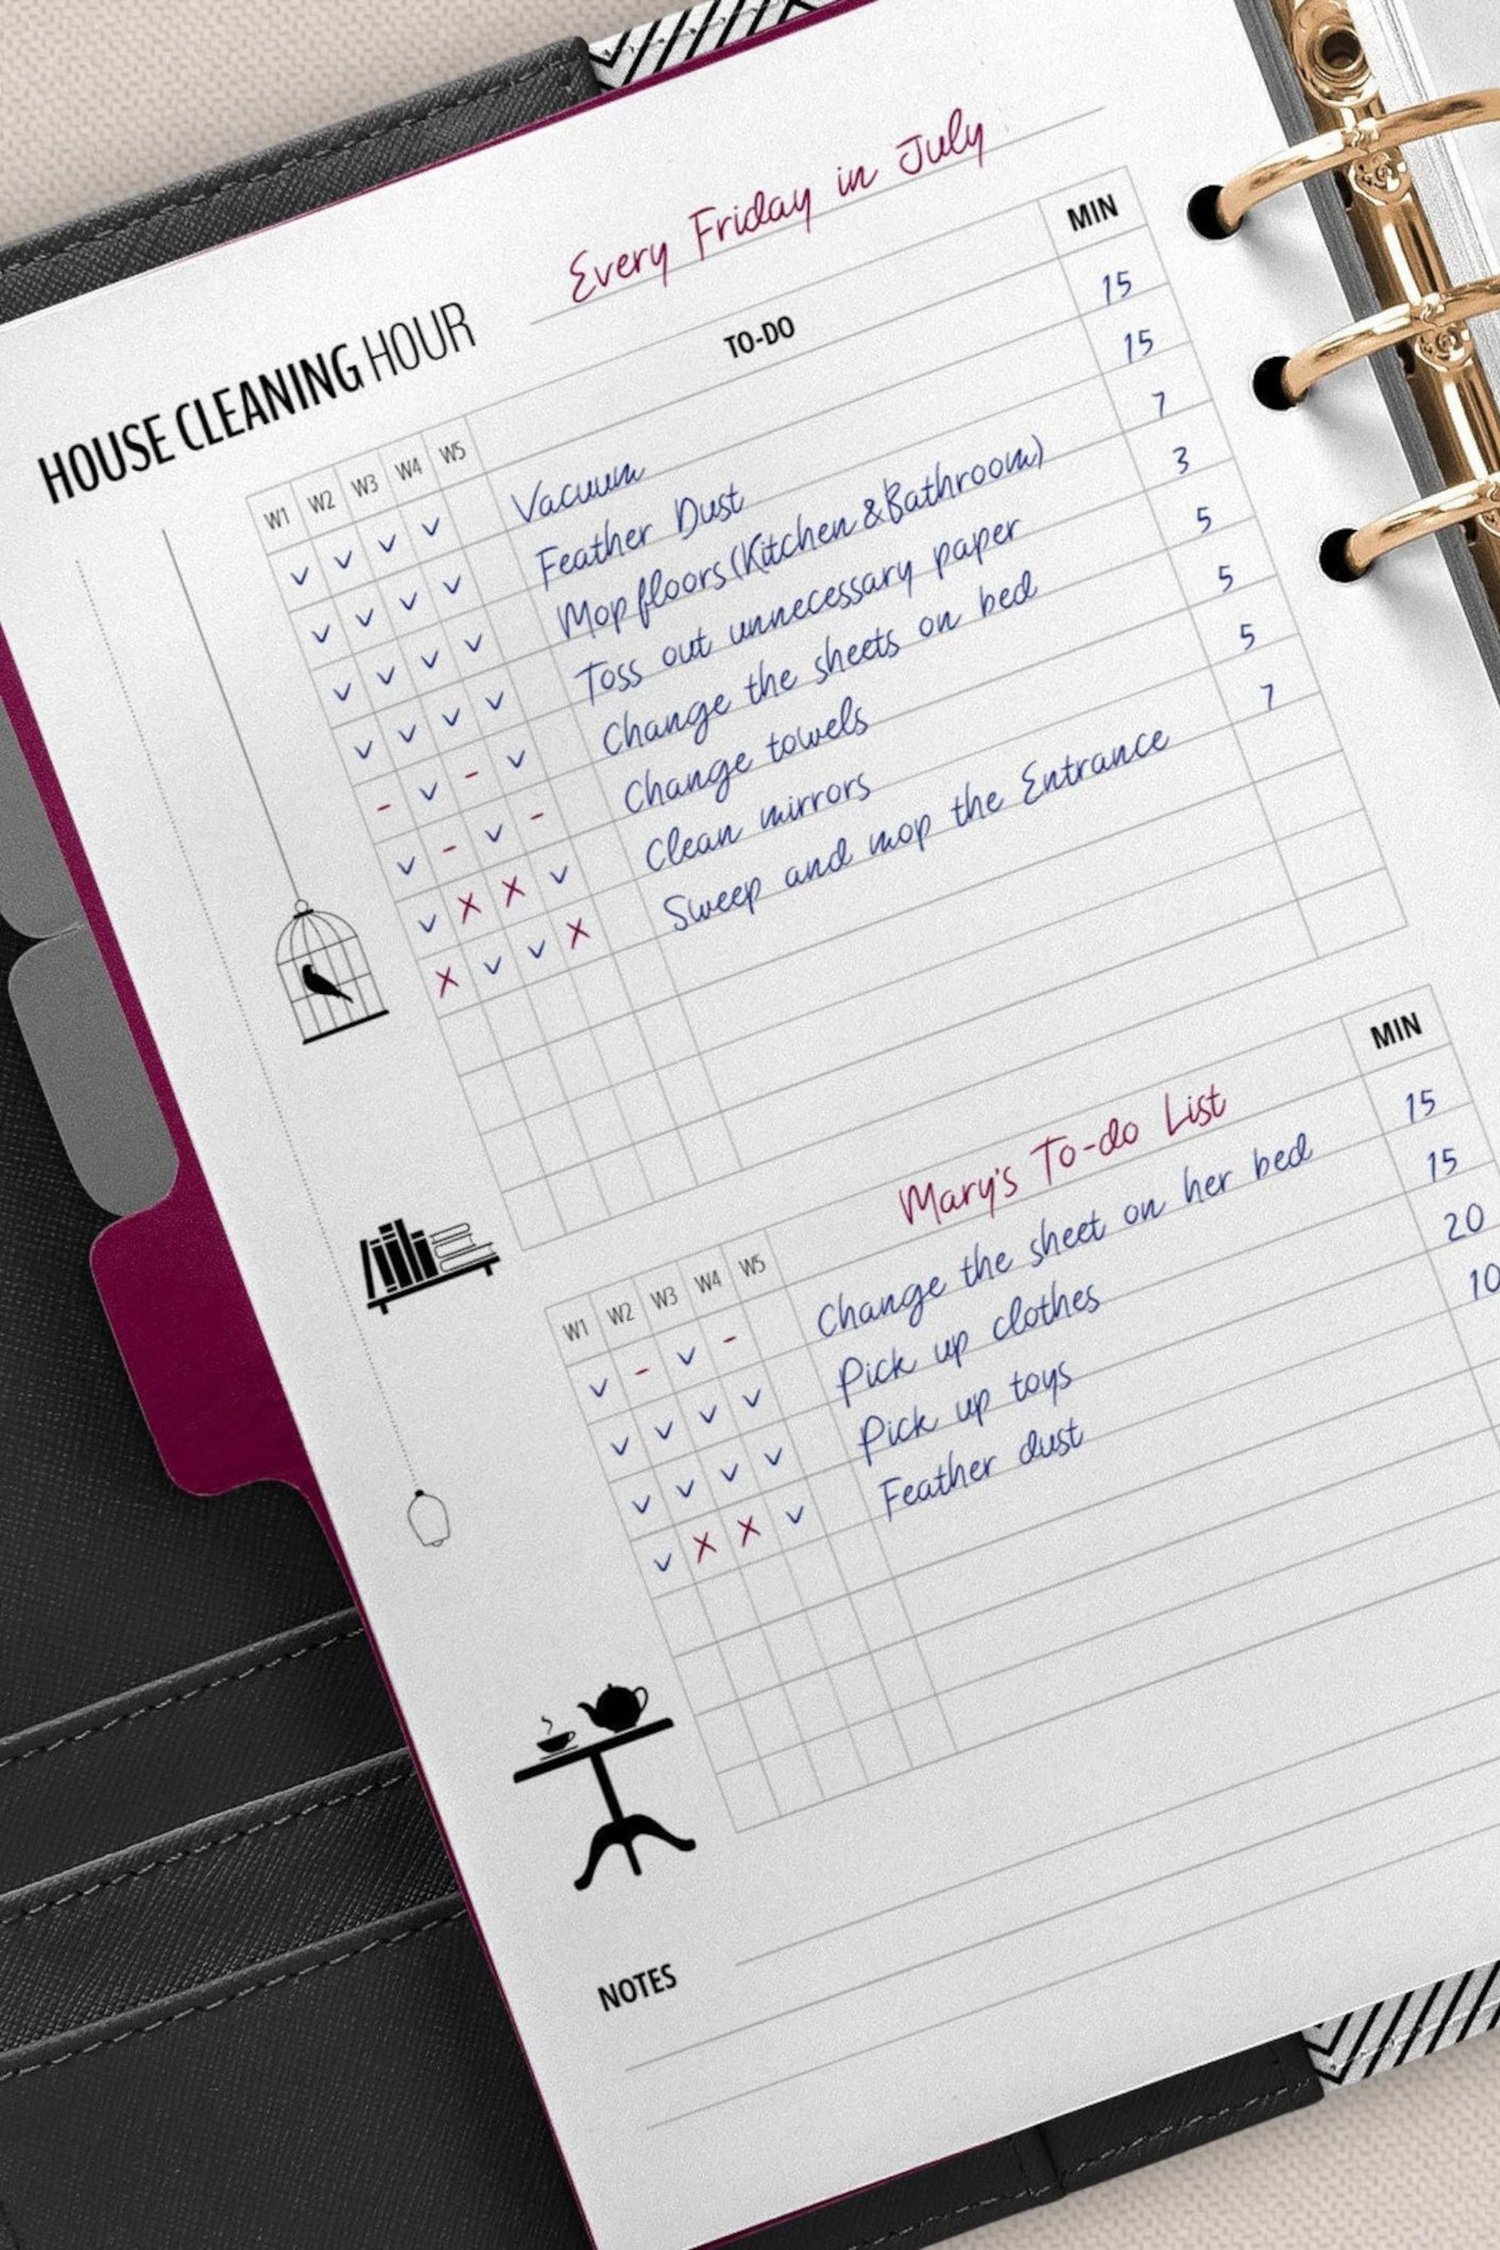 Every Friday in July
HOUSE CLEANING HOUR
W1 W2 W3 W4 W5 TO-DO MIN
✓ ✓ ✓ ✓ Vacuum 15
✓ ✓ ✓ ✓ Feather Dust 15
✓ ✓ ✓ ✓ Mop floors (Kitchen & Bathroom) 7
✓ ✓ ✓ ✓ Toss out unnecessary paper 3
- ✓ - ✓ Change the sheets on bed 5
✓ - ✓ - Change towels 5
✓ X X ✓ Clean mirrors 5
X ✓ ✓ X Sweep and mop the Entrance 7
W1 W2 W3 W4 W5 Mary's To-do List MIN
✓ - ✓ - Change the sheet on her bed 15
✓ ✓ ✓ ✓ Pick up clothes 15
✓ ✓ ✓ ✓ Pick up toys 20
✓ X X ✓ Feather dust 10
NOTES